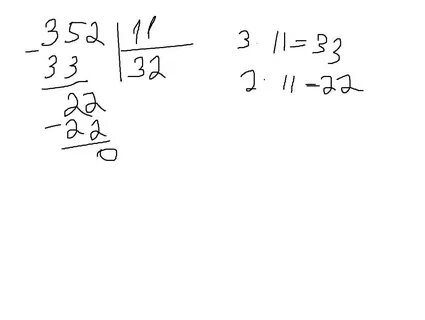 352 | 11
- 33 | 32
22
- 22
0
3 · 11 = 33
2 · 11 - 22